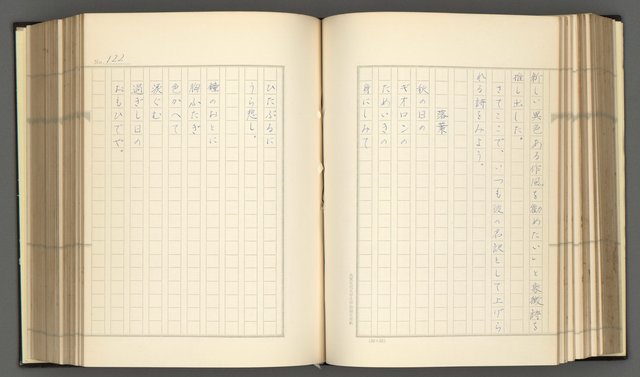 新しい異色ある作風を勧めたい」と象徴詩を
推し出した。
さてここで、いつも彼の名訳として上げら
れる詩をみよう。
落葉
秋の日の
ギオロンの
ためいきの
身にしみて
No. 122
ひたぶるに
うら悲し。
鐘のおとに
胸ふたぎ
色かへて
涙ぐむ
過ぎし日の
おもひでや。